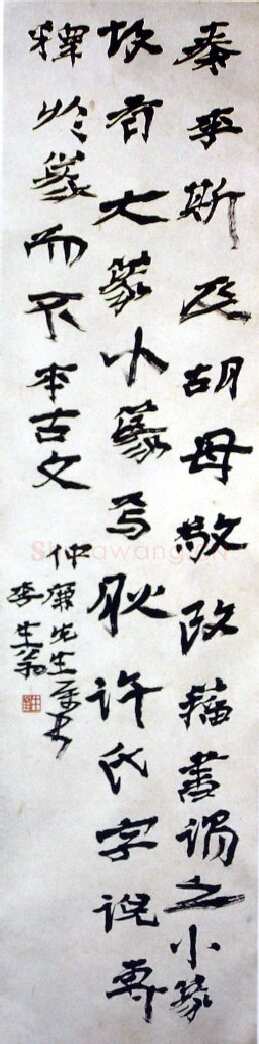 秦李斯及胡母敬改籀書謂之小篆
故有大篆小篆焉肰許氏字說專
釋於篆而不本古文
仲先生
李生翁